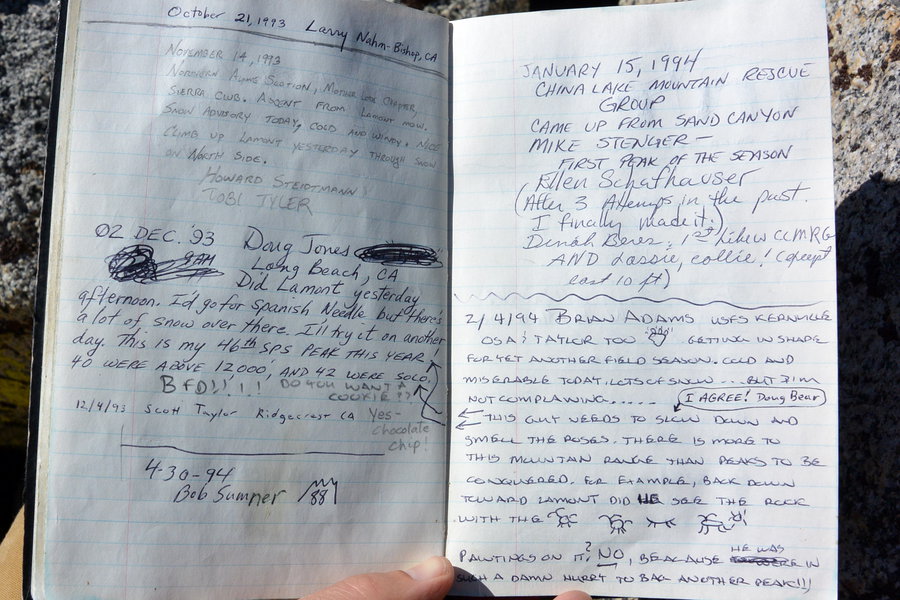 October 21, 1993 Larry Nahm-Bishop, CA
NOVEMBER 14, 1993
NORTHERN ALPINE SECTION, MOTHER LODE CHAPTER,
SIERRA CLUB. ASCENT FROM LAMONT MDW.
SNOW ADVISORY TODAY, COLD AND WINDY. NICE
CLIMB UP LAMONT YESTERDAY THROUGH SNOW
ON NORTH SIDE.
HOWARD STEIDTMANN
TOBI TYLER
02 DEC. '93 Doug Jones
9AM Long Beach, CA
Did Lamont yesterday
afternoon. I'd go for Spanish Needle but there's
a lot of snow over there. I'll try it on another
day. THIS IS MY 46th SPS PEAK THIS YEAR!
40 WERE ABOVE 12000, AND 42 WERE SOLO.
BFD!!!!! DO YOU WANT A
COOKIE??
12/4/93 Scott Taylor Ridgecrest CA Yes-
chocolate
chip!
4-30-94
Bob Sumner 88
JANUARY 15, 1994
CHINA LAKE MOUNTAIN RESCUE
GROUP
CAME UP FROM SAND CANYON
MIKE STENGER —
FIRST PEAK OF THE SEASON
Ellen Schafhauser
(After 3 Attemps in the past.
I finally made it.)
Dinah Beres, 1st hike w CLMRG
AND Lassie, collie! (except
last 10 ft)
2/4/94 BRIAN ADAMS USFS KERNVILLE
OSA & TAYLOR TOO GETTING IN SHAPE
FOR YET ANOTHER FIELD SEASON. COLD AND
MISERABLE TODAY. LOTS OF SNOW... BUT I'M
NOT COMPLAINING..... I AGREE! Doug Bear
THIS GUY NEEDS TO SLOW DOWN AND
SMELL THE ROSES. THERE IS MORE TO
THIS MOUNTAIN RANGE THAN PEAKS TO BE
CONQUERED. FOR EXAMPLE, BACK DOWN
TOWARD LAMONT DID HE SEE THE ROCK
WITH THE
PAINTINGS ON IT? NO, BEACAUSE HE WAS IN
SUCH A DAMN HURRY TO BAG ANOTHER PEAK!!!